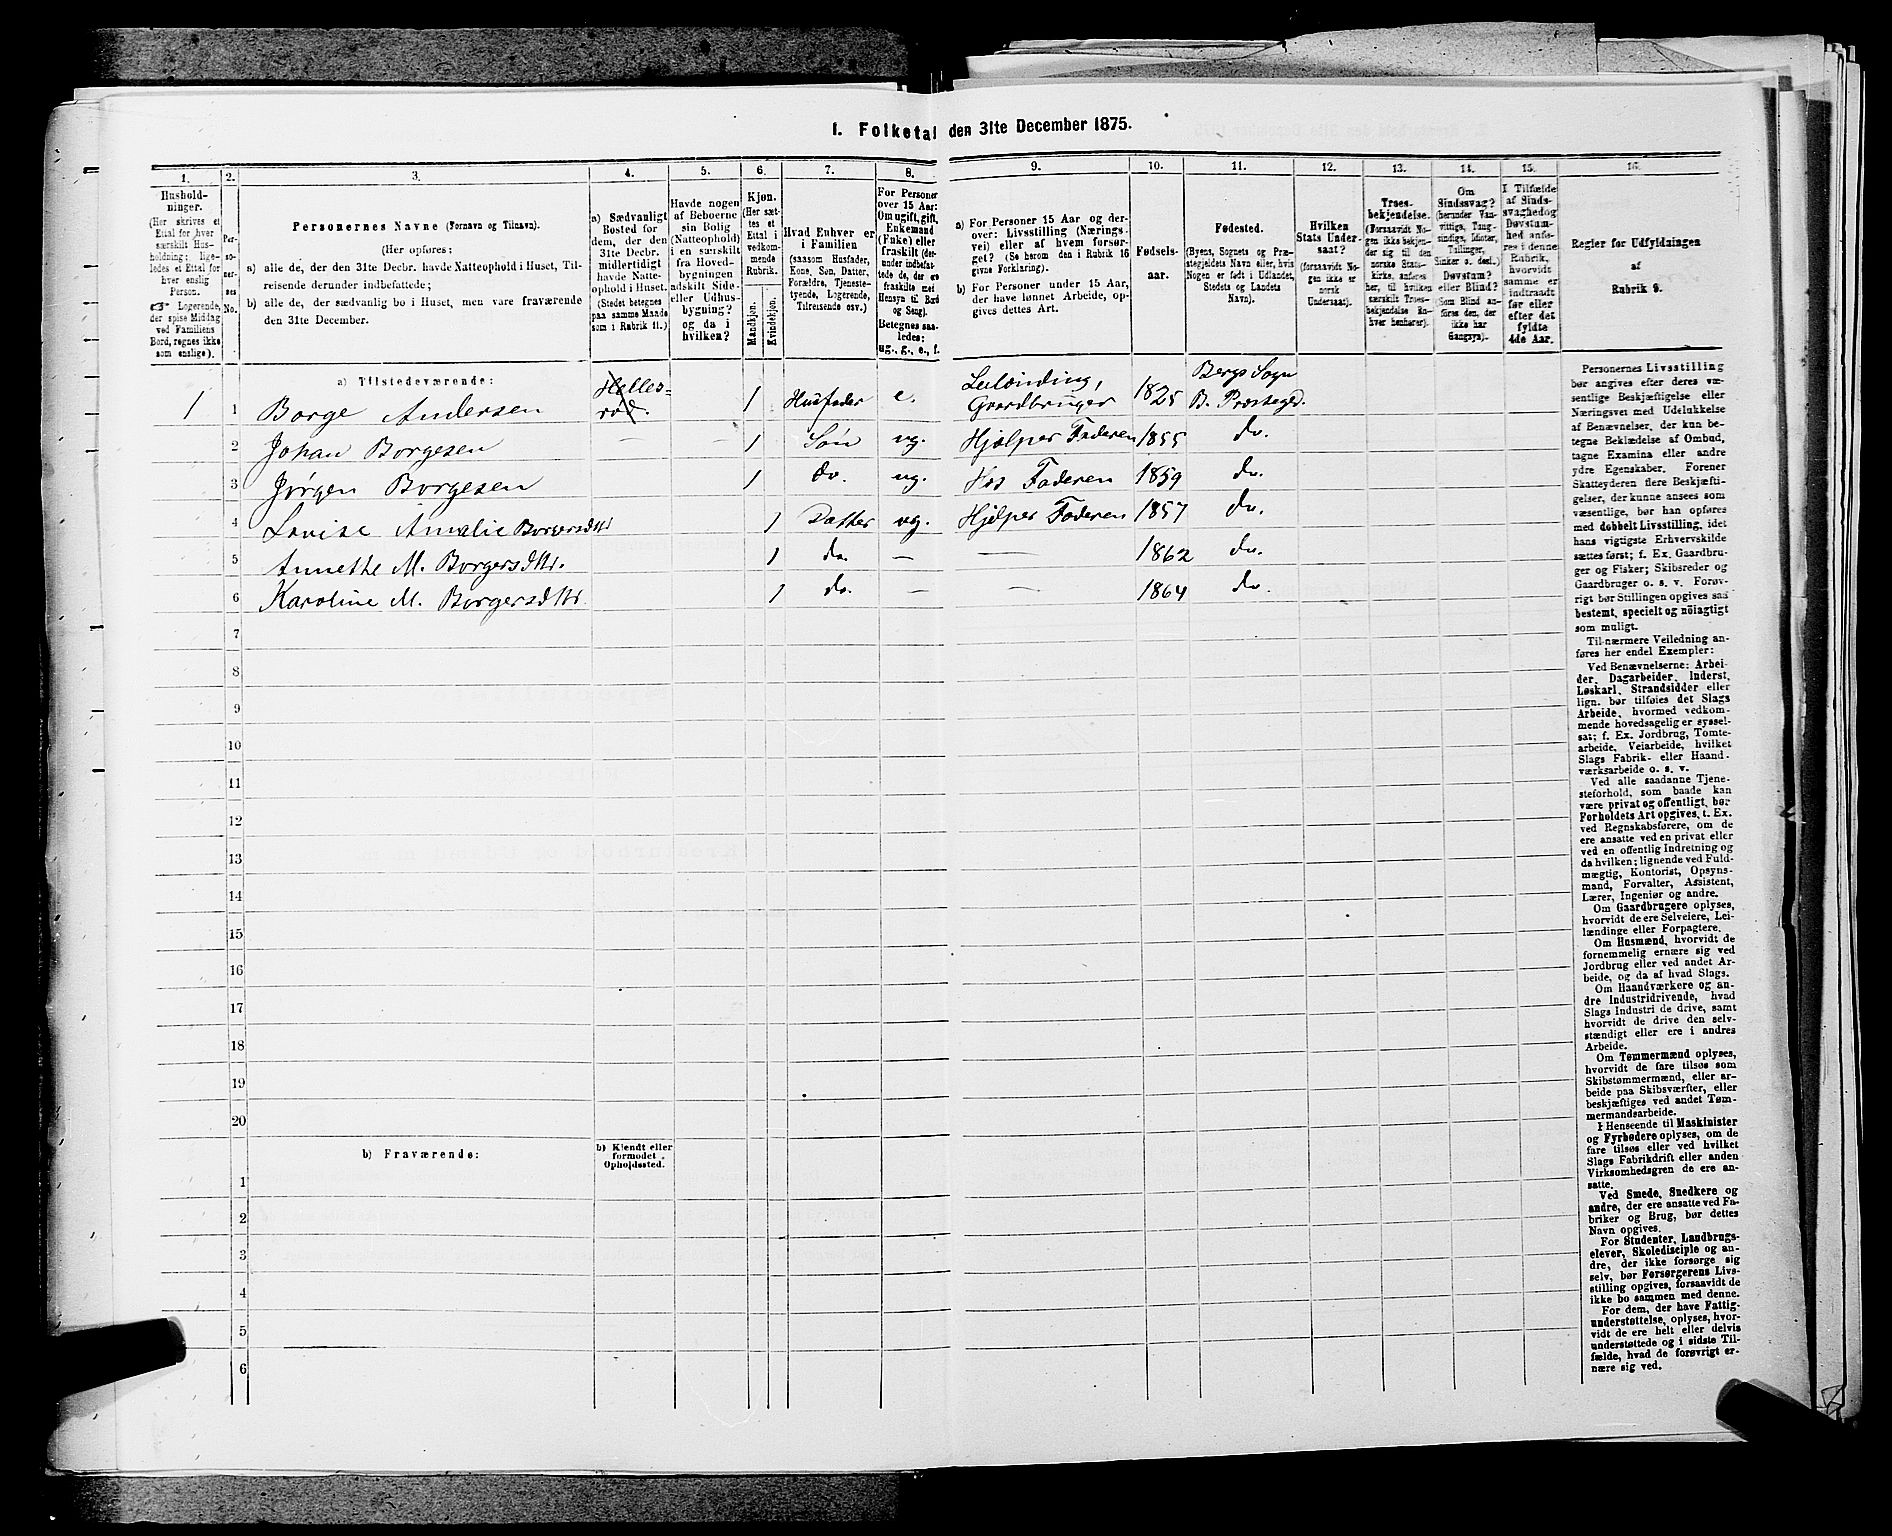 I. Folketal den 31te December 1875.
1. 2. 3. 4. 5. 6. 7. 8. 9. 10. 11. 12. 13. 14. 15. 16.
Hushold-
ninger.
(Her skrives et
Ettal for hver
særskilt Hus-
holdning; lige-
ledes et Ettal for
hver enslig
Person.
☞ Logerende,
der spise Middag
ved Familiens
Bord, regnes ikke
som enslige).
Per-
so-
ner-
nes
No.
Personernes Navne (Fornavn og Tilnavn).
(Her opføres:
a) alle de, der den 31te Decbr. havde Natteophold i Huset, Til-
reisende derunder indbefattede;
b) alle de, der sædvanlig bo i Huset, men vare fraværende
den 31te December.
a) Sædvanligt
Bosted for
dem, der den
31te Decbr.
midlertidigt
havde Natte-
ophold i Huset.
(Stedet betegnes
paa samme Maade
som i Rubrik 11.)
Havde nogen
af Beboerne
sin Bolig
(Natteophold)
i en særskilt
fra Hoved-
bygningen
adskilt Side-
eller Udhus-
bygning?
og da i
hvilken?
Kjøn.
(Her sæt-
tes et
Ettal i
vedkom-
mende
Rubrik.
Mandkjøn.
Kvindekjøn.
Hvad Enhver er
i Familien
(saasom Husfader,
Kone, Søn, Datter,
Forældre, Tjeneste-
tyende, Logerende,
Tilreisende osv.)
For Personer
over 15 Aar:
Om ugift, gift,
Enkemand
(Enke) eller
fraskilt (der-
under indbefat-
tede de, der ere
fraskilte med
Hensyn til Bord
og Seng).
Betegnes saa-
ledes:
ug., g., e., f.
a) For Personer 15 Aar og der-
over: Livsstilling (Nærings-
vei) eller af hvem forsør-
get? (Se herom den i Rubrik 16
givne Forklaring).
b) For Personer under 15 Aar,
der have lønnet Arbeide, op-
gives dettes Art.
Fødsels-
aar.
Fødested.
(Byens, Sognets og Præ-
stegjeldets Navn eller, hvis
Nogen er født i Udlandet,
Stedets og Landets
Navn).
Hvilken
Stats Under-
saat?
(forsaavidt No-
gen ikke er
norsk
Undersaat).
Troes-
bekjendelse.
(Forsaavidt No-
gen ikke bekjen-
der sig til den
norske Stats-
kirke, anføres
her, til hvilken
særskilt Troes-
bekjendelse En-
hver henhører).
Om
Sindssvag?
(herunder Van-
vittige, Tung-
sindige, Idioter,
Tullinger,
Sinker o. desl.)
Døvstum?
eller Blind?
(Som Blind an-
føres den, der
ikke har
Gangsyn).
I Tilfælde
af Sinds-
svaghed og
Døvstum-
hed anfø-
res i denne
Rubrik,
hvorvidt
samme er
indtraadt
før eller
efter det
fyldte
4de Aar.
Regler for Udfyldningen
af
Rubrik 9.
a) Tilstedeværende:
1 1 Borge Andersen Hellesrød. 1 Husfader e. Leilænding, Gaardbruger 1825 Bergs Sogn B. Præstegd.
2 Johan Borgesen — — 1 Søn ug. Hjælper Faderen 1855 do.
3 Jørgen Borgesen 1 do. ug. Hos Faderen 1859 do.
4 Lovise Amalie Borgersdttr 1 Datter ug. Hjelper Faderen 1857 do.
5 Annethe M. Borgersdttr. 1 do. — — 1862 do.
6 Karoline M. Borgersdttr. 1 do. — — 1864 do.
7
8
9
10
11
12
13
14
15
16
17
18
19
20
b) Fraværende:
b) Kjendt eller
formodet
Opholdssted.
1
2
3
4
5
6
Personernes Livsstilling
bør angives efter deres væ-
sentlige Beskjæftigelse eller
Næringsvei med Udelukkelse
af Benævnelser, der kun be-
tegne Beklædelse af Ombud,
tagne Examina eller andre
ydre Egenskaber. Forener
Skatteyderen flere Beskjæfti-
gelser, der kunne ansees som
væsentlige, bør han opføres
med dobbelt Livsstilling, idet
hans vigtigste Erhvervskilde
sættes først; f. Ex. Gaardbru-
ger og Fisker; Skibsreder og
Gaardbruger o. s. v. Forøv-
rigt bør Stillingen opgives saa
bestemt, specielt og nöiagtigt
som muligt.
Til nærmere Veiledning an-
føres her endel Exempler:
Ved Benævnelserne: Arbei-
der, Dagarbeider, Inderst,
Løskarl, Strandsidder eller
lign. bør tilføies det Slags
Arbeide, hvormed vedkom-
mende hovedsagelig er syssel-
sat; f. Ex. Jordbrug, Tomte-
arbeide, Veiarbeide, hvilket
Slags Fabrik- eller Haand-
værksarbeide o. s. v.
Ved alle saadanne Tjene-
steforhold, som baade kan
være privat og offentligt, bør
Forholdets Art opgives, t. Ex.
ved Regnskabsførere, om de
ere ansatte ved en privat eller
ved en offentlig Indretning og
da hvilken; lignende ved Fuld-
mægtig, Kontorist, Opsyns-
mand, Forvalter, Assistent,
Lærer, Ingeniør og andre.
Om Gaardbrugere oplyses,
hvorvidt de ere Selveiere, Lei-
lændinge eller Forpagtere.
Om Husmænd, hvorvidt de
fornemmelig ernære sig ved
Jordbrug eller ved andet Ar-
beide, og da af hvad Slags.
Om Haandværkere og an-
dre Industridrivende, hvad
Slags Industri de drive, samt
hvorvidt de drive den selv-
stændigt eller ere i andres
Arbeide.
Om Tømmermænd oplyses,
hvorvidt de fare tilsøs som
Skibstømmermænd, eller ar-
beide paa Skibsværfter, eller
beskjæftiges ved andet Tøm-
mermandsarbeide.
I Henseende til Maskinister
og Fyrbødere oplyses, om de
fare tilsøs eller ved hvilket
Slags Fabrikdrift eller anden
Virksomhedsgren de ere an-
satte.
Ved Smede, Snedkere og
andre, der ere ansatte ved Fa-
briker og Brug, bør dettes
Navn opgives.
For Studenter, Landbrugs-
elever, Skoledisciple og an-
dre, der ikke forsørge sig
selv, bør Forsørgerens Livs-
stilling opgives, forsaavidt de
ikke bo sammen med denne.
For dem, der have Fattig-
understøttelse, oplyses, hvor-
vidt de ere helt eller delvis
understøttede og i sidste Til-
fælde, hvad de forøvrigt er-
nære sig ved.